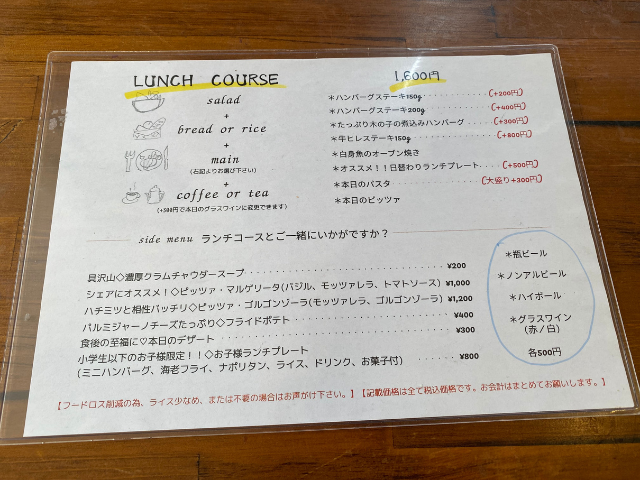 LUNCH COURSE 1,600円
salad
+
bread or rice
+
main
(右記よりお選び下さい)
+
coffee or tea
(+500円で本日のグラスワインに変更できます)
*ハンバーグステーキ150g (+200円)
*ハンバーグステーキ200g (+400円)
*たっぷり木の子の煮込みハンバーグ (+300円)
*牛ヒレステーキ150g (+800円)
*白身魚のオーブン焼き
*オススメ!!日替わりランチプレート (+500円)
*本日のパスタ (大盛り+300円)
*本日のピッツァ
side menu ランチコースとご一緒にいかがですか?
貝沢山◇濃厚クラムチャウダースープ ¥200
シェアにオススメ!◇ピッツァ・マルゲリータ(バジル、モッツァレラ、トマトソース) ¥1,000
ハチミツと相性バッチリ◇ピッツァ・ゴルゴンゾーラ(モッツァレラ、ゴルゴンゾーラ) ¥1,200
パルミジャーノチーズたっぷり◇フライドポテト ¥400
食後の至福に♡本日のデザート ¥300
小学生以下のお子様限定!!◇お子様ランチプレート
(ミニハンバーグ、海老フライ、ナポリタン、ライス、ドリンク、お菓子付) ¥800
*瓶ビール
*ノンアルビール
*ハイボール
*グラスワイン
(赤/白)
各500円
【フードロス削減の為、ライス少なめ、または不要の場合はお声がけ下さい。】【記載価格は全て税込価格です。お会計はまとめてお願いします。】